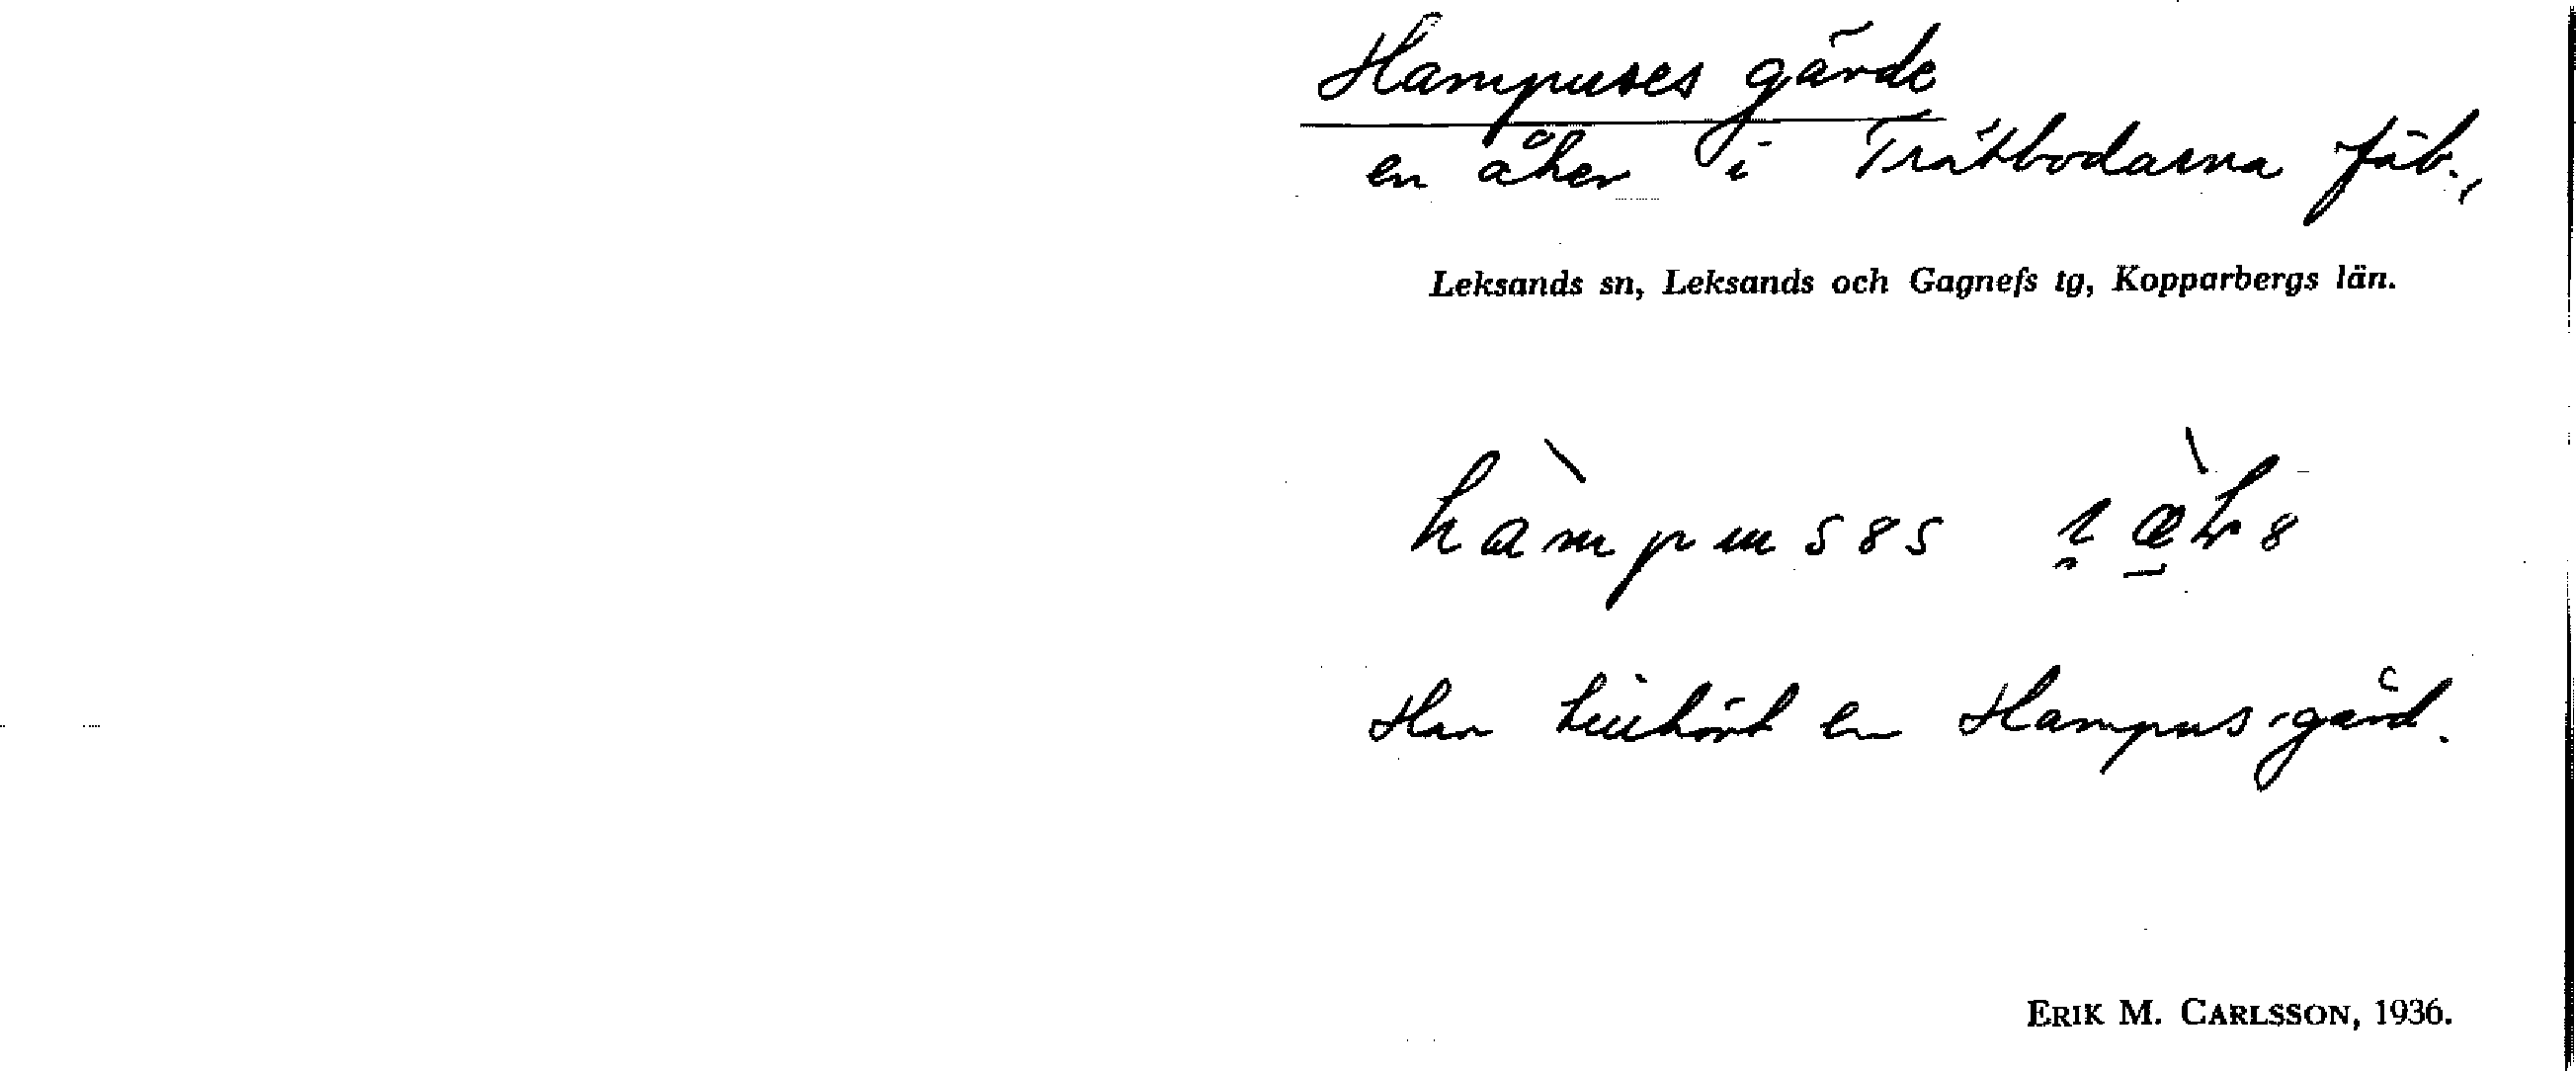 Hampuses gärde
en åker i Trätbodarna fäb.,
Leksands sn, Leksands och Gagnefs tg, Kopparbergs län.
Har tillhört en Hampus-gård.
ERIK M. CARLSSON, 1936.